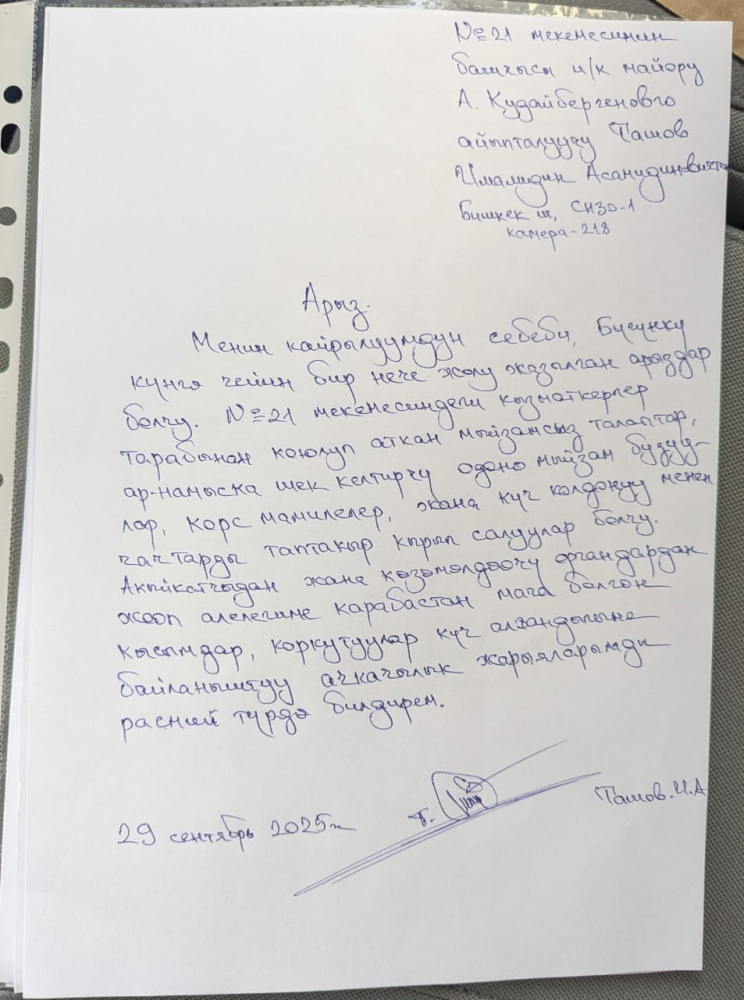 №21 мекемесинин
башчысы и/к майору
А. Кудайбергеновго
айыпталуучу Ташов
Имамидин Асанидиновичтен
Бишкек ш, СИЗО-1
камера-218
Арыз.
Менин кайрылуумдун себеби, Бүгүнкү
күнгө чейин бир нече жолу жазылган арыздар
болчу. №21 мекемесиндеги кызматкерлер
тарабынан коюлуп аткан мыйзамсыз талаптар,
ар-намыска шек келтирчү одоно мыйзам бузуу-
лар, корс мамилелер, жана күч колдонуу менен
чачтарды таптакыр кырып салуулар болчу.
Акыйкатчыдан жана көзөмөлдөөчү органдардан
жооп алелегиме карабастан мага болгон
кысымдар, коркутуулар күч алгандыгына
байланыштуу ачкачылык жарыяларымды
расмий түрдө билдирем.
29 сентябрь 2025ж
Т.
Ташов.И.А